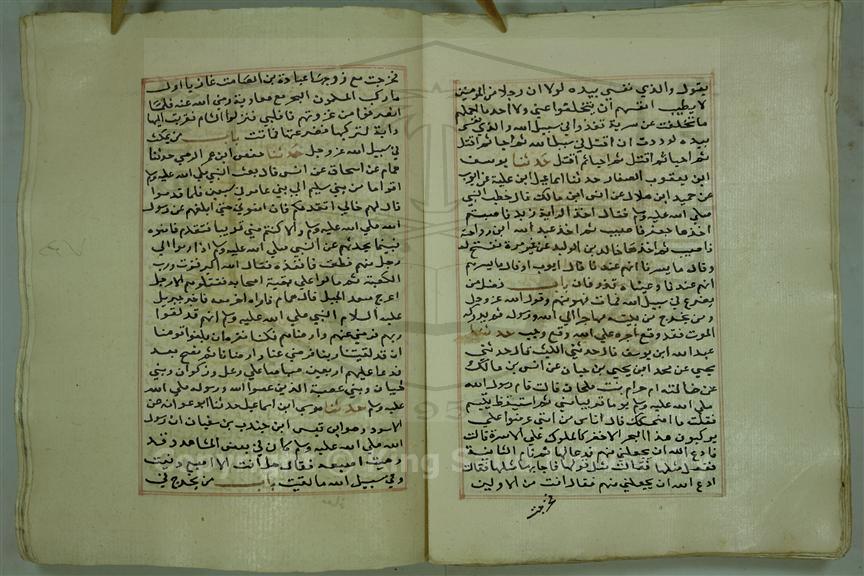 يقول والذي نفسي بيده لولا ان رجلا من المؤمنين
لا يطيب انفسهم ان يتخلفوا عني ولا أجد ما احملهم
ما تخلفت عن سرية تغدوا في سبيل الله والذي نفسي
بيده لوددت ان اقتل في سبيل الله ثم احيا ثم اقتل
ثم احيا ثم اقتل ثم احيا ثم اقتل حدثنا يوسف
ابن يعقوب الصفار حدثنا اسماعيل ابن علية عن ايوب
عن حميد ابن هلال عن انس ابن مالك قال خطب النبي
صلى الله عليه وسلم فقال اخذ الراية زيد فاصيب ثم
اخذها جعفر فاصيب ثم اخذ عبد الله ابن رواحة
فاصيب ثم اخذها خالد بن الوليد عن غير مرة ففتح له
وقال ما يسرنا انهم عندنا قال ايوب او قال ما يسرهم
انهم عندنا وعيناه تذرفان باب فضل من
يصرع في سبيل الله فمات فهو منهم وقول الله عز وجل
ومن يخرج من بيته مهاجرا الى الله ورسوله ثم يدركه
الموت فقد وقع أجره على الله وقع وجب حدثنا
عبد الله ابن يوسف قال حدثني الليث قال حدثني
يحيى عن محمد ابن يحيى بن حبان عن انس بن مالك
عن خالته ام حرام بنت ملحان قالت نام رسول الله
صلى الله عليه وسلم يوما قريبا مني ثم استيقظ يتبسم
فقلت ما اضحكك قال اناس من امتي عرضوا علي
يركبون هذا البحر الاخضر كالملوك على الاسرة قالت
فادع الله ان يجعلني منهم فدعا لها ثم نام الثانية
ففعل مثلها فقالت مثل قولها فاجابها مثلها فقالت
ادع الله ان يجعلني منهم فقال انت من الاولين
فخرجت
فخرجت مع زوجها عبادة بن الصامت غازيا اول
ما ركب المسلمون البحر مع معاوية رضي الله عنه فلما
انصرفوا من غزوتهم قافلين فنزلوا الشام فقربت اليها
دابة لتركبها فصرعتها فماتت باب من ينكب
في سبيل الله عز وجل حدثنا حفص ابن عمر الحوضي حدثنا
همام عن اسحاق عن انس قال بعث النبي صلى الله عليه وسلم
اقواما من بني سليم الى بني عامر في سبعين فلما قدموا
قال لهم خالي اتقدمكم فان امنوني حتى ابلغهم عن رسول
الله صلى الله عليه وسلم والا كنتم مني قريبا فتقدم فامنوه
فبينما يحدثهم عن النبي صلى الله عليه وسلم اذا اومؤا الى
رجل منهم فطعنه فانفذه فقال الله اكبر فزت ورب
الكعبة ثم مالوا على بقية اصحابه فقتلوهم الا رجل
اعرج صعد الجبل قال همام فاراه اخر معه فاخبر جبريل
عليه السلام النبي صلى الله عليه وسلم انهم قد لقوا
ربهم فرضي عنهم وارضاهم فكنا نقرأ ان بلغوا قومنا
ان قد لقينا ربنا فرضي عنا وارضانا ثم نسخ بعد
فدعا عليهم اربعين صباحا على رعل وذكوان وبني
لحيان وبني عصية الذين عصوا الله ورسوله صلى الله
عليه وسلم حدثنا موسى ابن اسماعيل حدثنا ابو عوانة عن
الاسود وهو ابن قيس عن جندب بن سفيان ان رسول
الله صلى الله عليه وسلم كان في بعض المشاهد وقد
دميت اصبعه فقال هل انت الا اصبع دميت
وفي سبيل الله ما لقيت باب من يخرج في